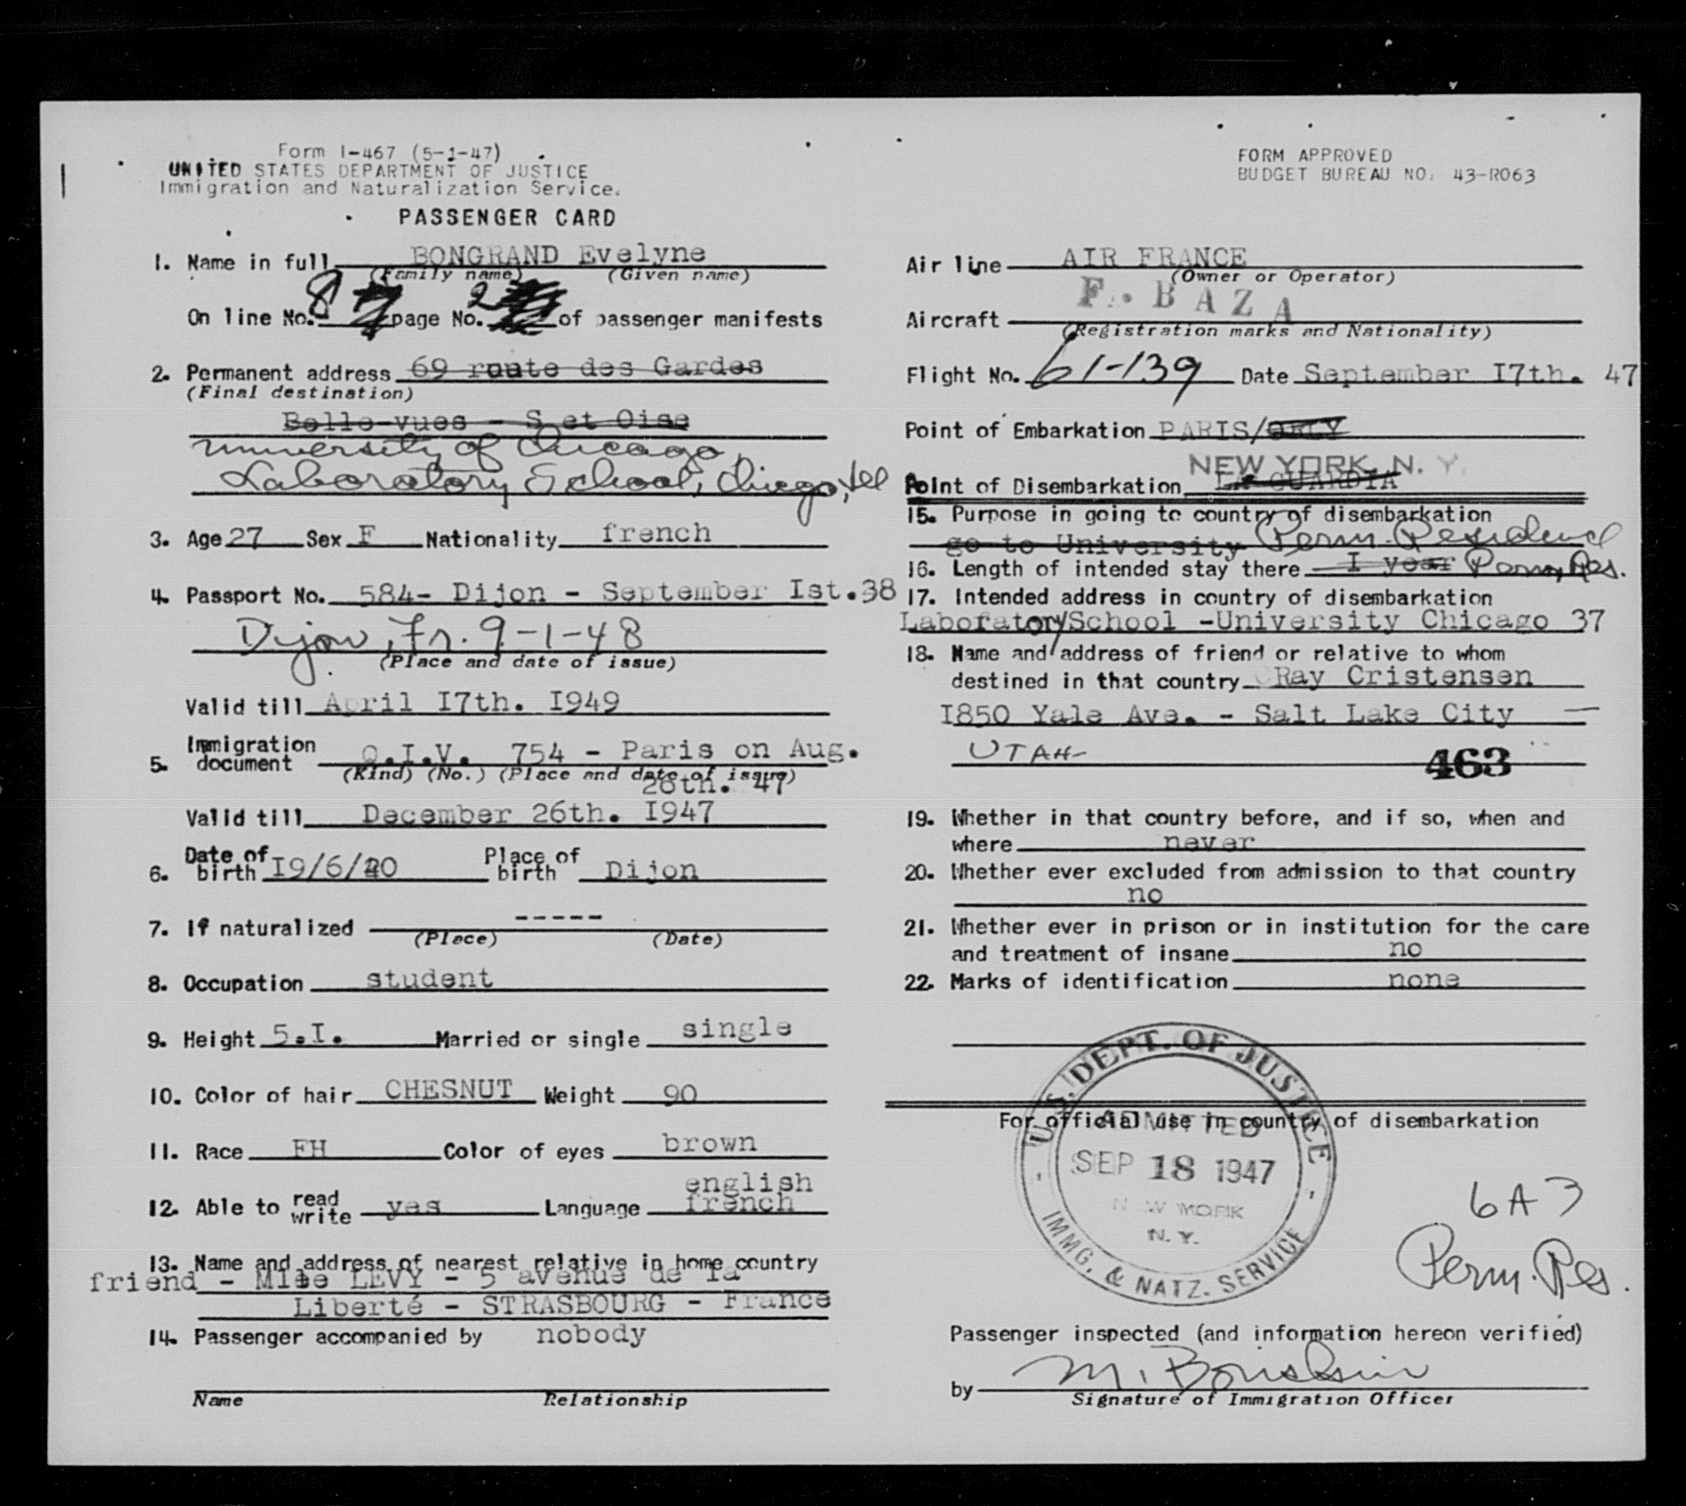 Form I-467 (5-1-47)
UNITED STATES DEPARTMENT OF JUSTICE
Immigration and Naturalization Service.
PASSENGER CARD
FORM APPROVED
BUDGET BUREAU NO. 43-R063
1. Name in full BONGRAND Evelyne
(Family name) (Given name)
On line No. 8 page No. 2 of passenger manifests
2. Permanent address 69 route des Gardes
(Final destination)
Belle-vues - S et Oise
University of Chicago,
Laboratory School, Chicago, Ill
3. Age 27 Sex F Nationality french
4. Passport No. 584- Dijon - September Ist. 38
Dijon, Fr. 9-1-48
(Place and date of issue)
Valid till April I7th. I949
5. Immigration document Q.I.V. 754 - Paris on Aug.
(Kind) (No.) (Place and date of issue)
26th. 47
Valid till December 26th. I947
6. Date of birth I9/6/20 Place of birth Dijon
7. If naturalized -----
(Place) (Date)
8. Occupation student
9. Height 5.I. Married or single single
10. Color of hair CHESNUT Weight 90
11. Race FH Color of eyes brown
12. Able to read write yes Language english french
13. Name and address of nearest relative in home country
friend - Mlle LEVY - 5 avenue de la
Liberté - STRASBOURG - France
14. Passenger accompanied by nobody
Name Relationship
Air line AIR FRANCE
(Owner or Operator)
Aircraft F. BAZA
(Registration marks and Nationality)
Flight No. 61-139 Date September I7th. 47
Point of Embarkation PARIS/ORLY
NEW YORK, N. Y.
Point of Disembarkation LA GUARDIA
15. Purpose in going to country of disembarkation
go to University Perm. Residence
16. Length of intended stay there I year Perm. Res.
17. Intended address in country of disembarkation
Laboratory School -University Chicago 37
18. Name and address of friend or relative to whom
destined in that country Ray Cristensen
I850 Yale Ave. - Salt Lake City
UTAH
463
19. Whether in that country before, and if so, when and
where never
20. Whether ever excluded from admission to that country
no
21. Whether ever in prison or in institution for the care
and treatment of insane no
22. Marks of identification none
For official use in country of disembarkation
U.S. DEPT. OF JUSTICE
ADMITTED
SEP 18 1947
NEW YORK
N. Y.
IMMG. & NATZ. SERVICE
6A3
Perm. Res.
Passenger inspected (and information hereon verified)
by
Signature of Immigration Officer